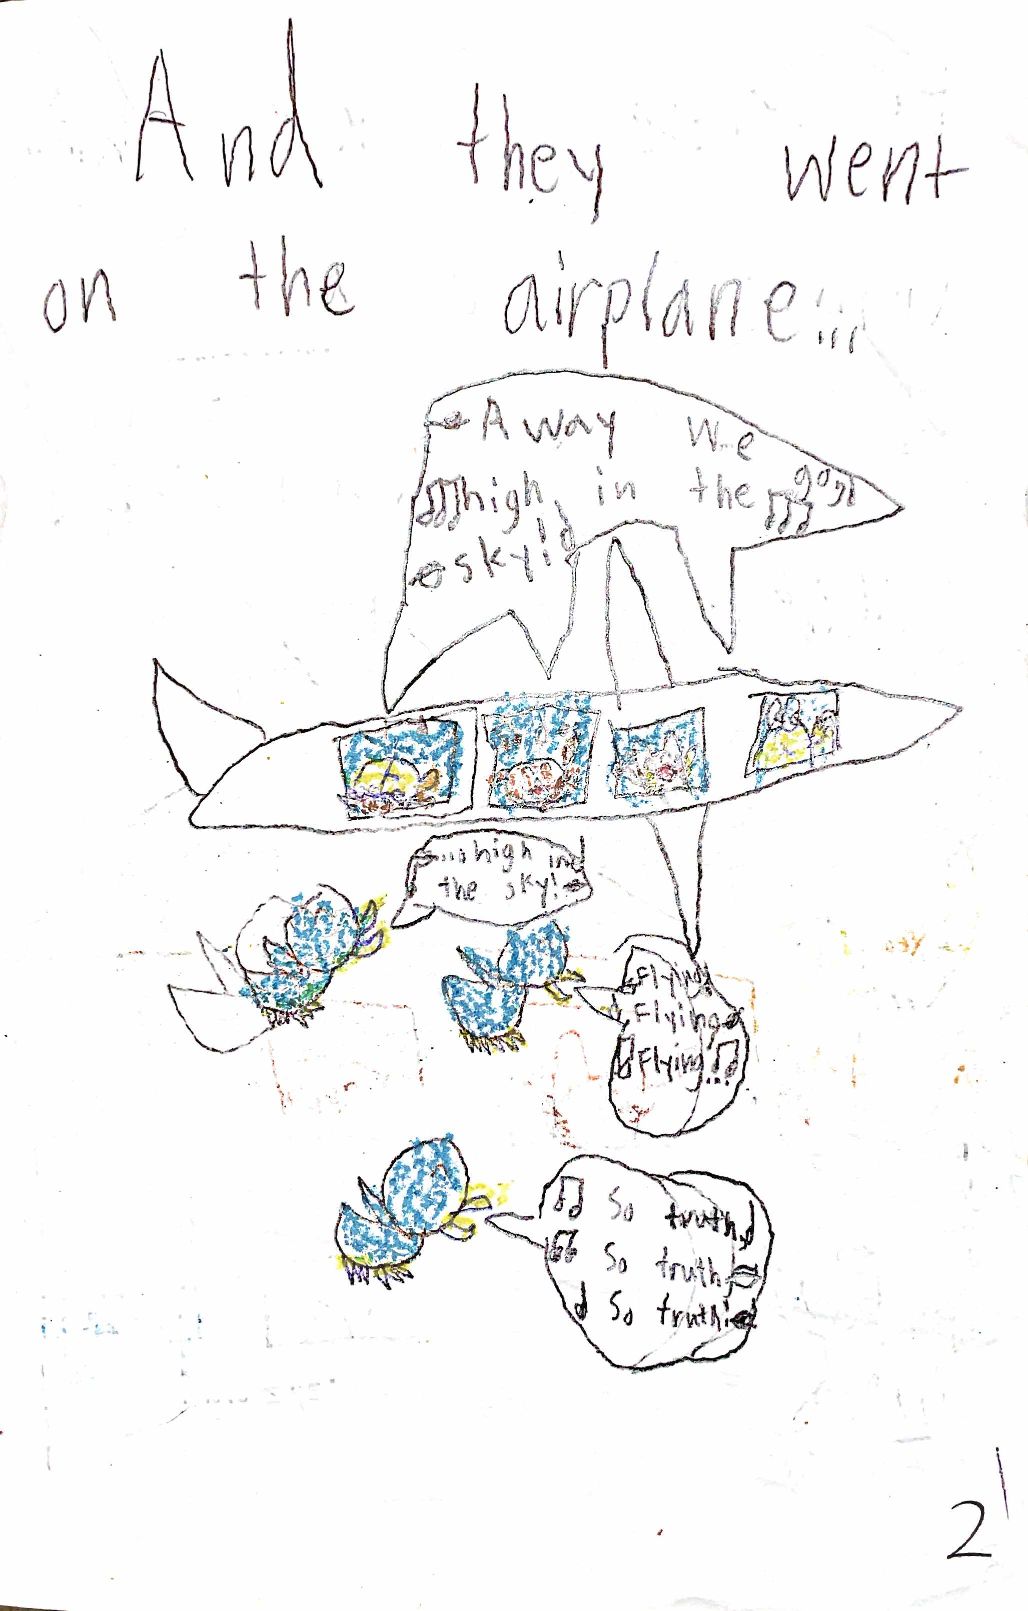 And they went
on the airplane...
Away we
go,
high in the
sky!
...high in
the sky!
Flying!
Flying
Flying...
So truth,
So truth,
So truth!
2